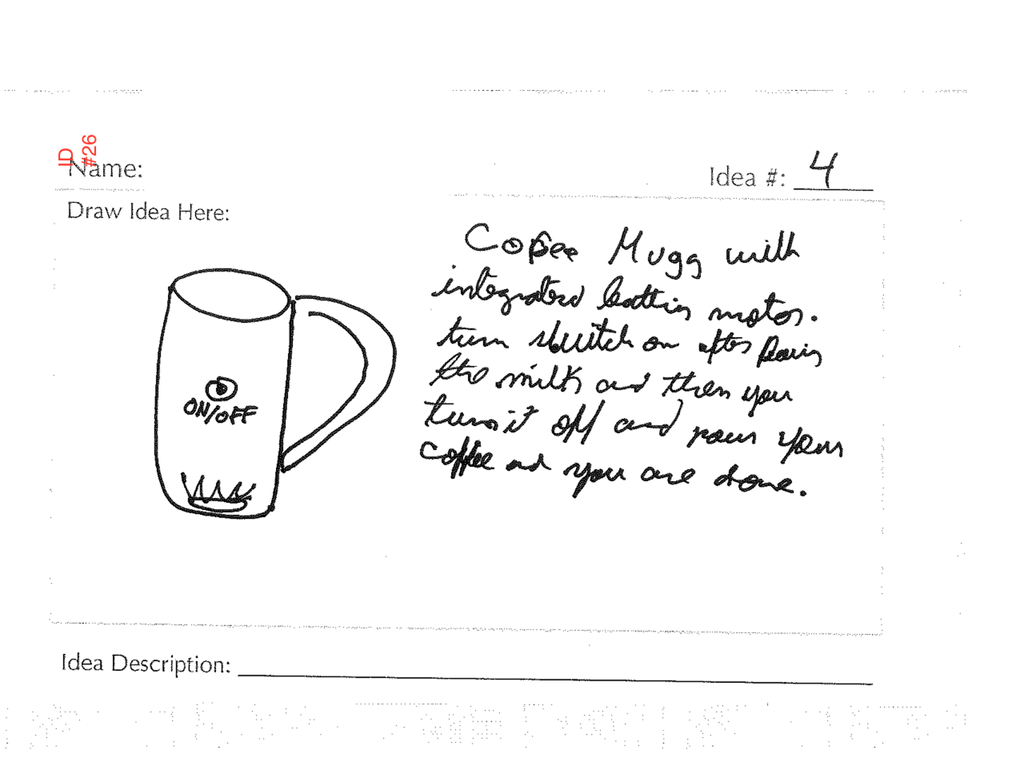 ID
#26
Name:
Idea #: 4
Draw Idea Here:
Coffee Mugg with
integrated battery motor.
turn switch on after pouring
the milk and then you
turn it off and pour your
coffee and you are done.
ON/OFF
Idea Description: